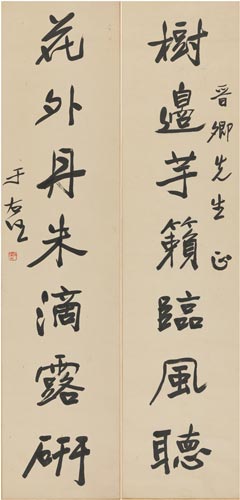 晉卿先生正
樹邊芋籟臨風聽
花外丹朱滴露研
于右任